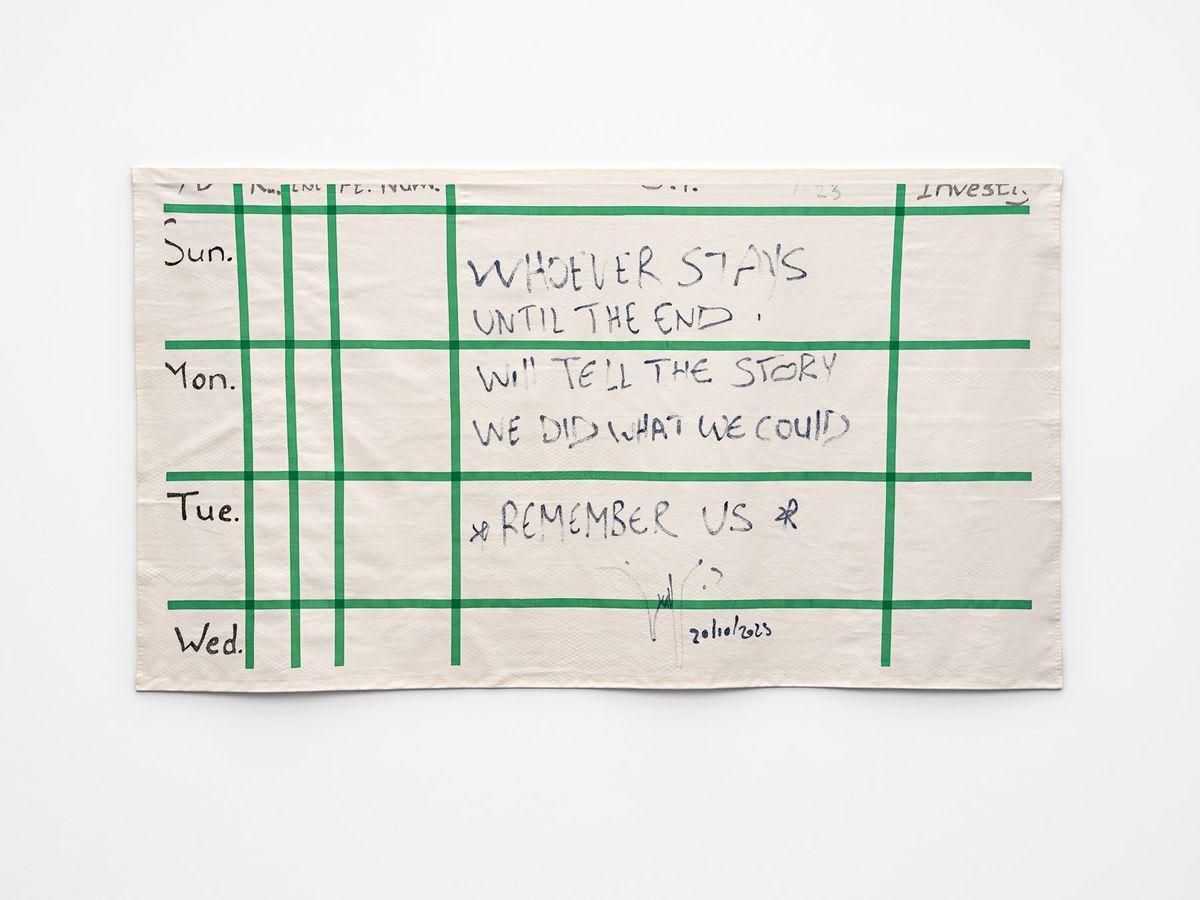 Num.
23
Sun.
WHOEVER STAYS
UNTIL THE END .
Mon.
Will TELL THE STORY
WE DID WHAT WE COULD
Tue.
* REMEMBER US *
20/10/2023
Wed.